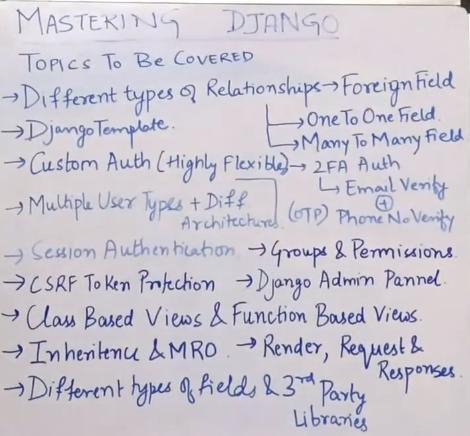 MASTERING DJANGO
TOPICS TO BE COVERED
→Different types of Relationships→Foreign Field
→One To One Field.
→Django Template.
→Many To Many Field
→Custom Auth (Highly Flexible)→2FA Auth
→Email Verify
→Multiple User Types + Diff
Architectures
(OTP) Phone No Verify
→Session Authentication →Groups & Permissions.
→CSRF Token Protection →Django Admin Pannel.
→Class Based Views & Function Based Views.
→Inheritence & MRO. →Render, Request &
Responses.
→Different types of fields & 3rd Party
Libraries